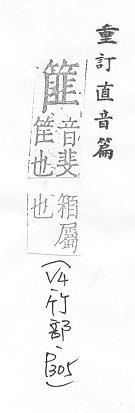 重訂直音篇
篚
音斐
筐也
箱屬
也
(V4·竹部·P305)